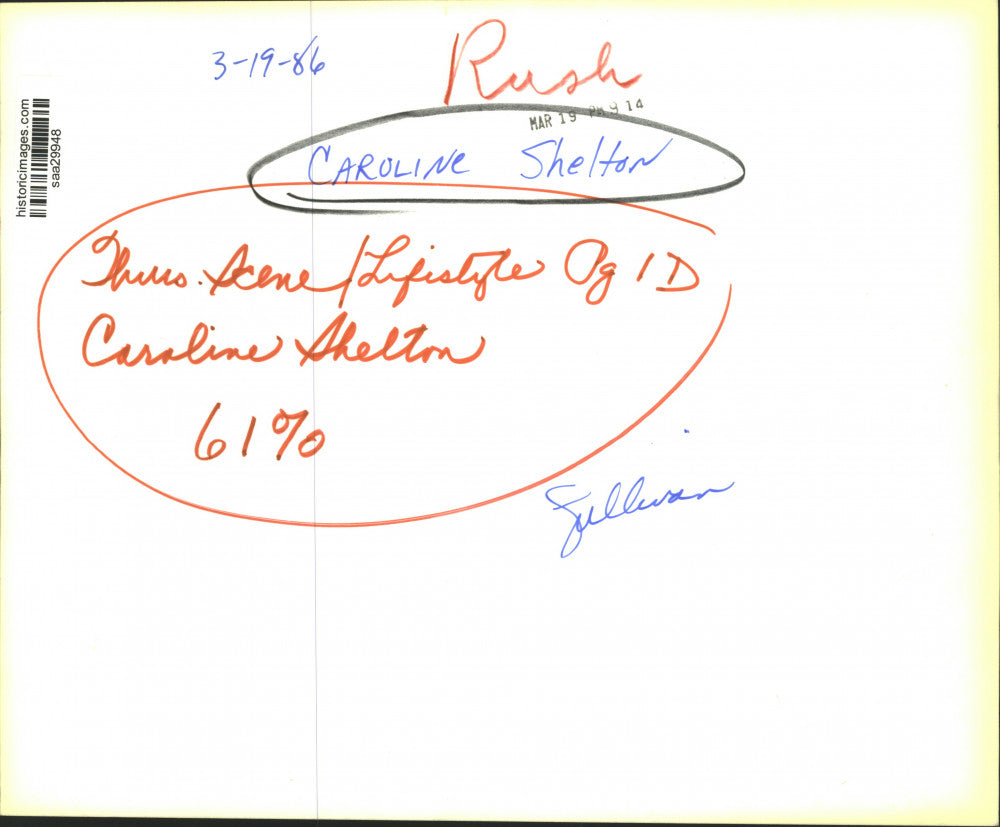 3-19-86
Rush
MAR 19 PM 9 14
CAROLINE Shelton
Thurs. Scene/Lifestyle Pg 1D
Caroline Shelton
61%
Sullivan
historicimages.com
saa29948